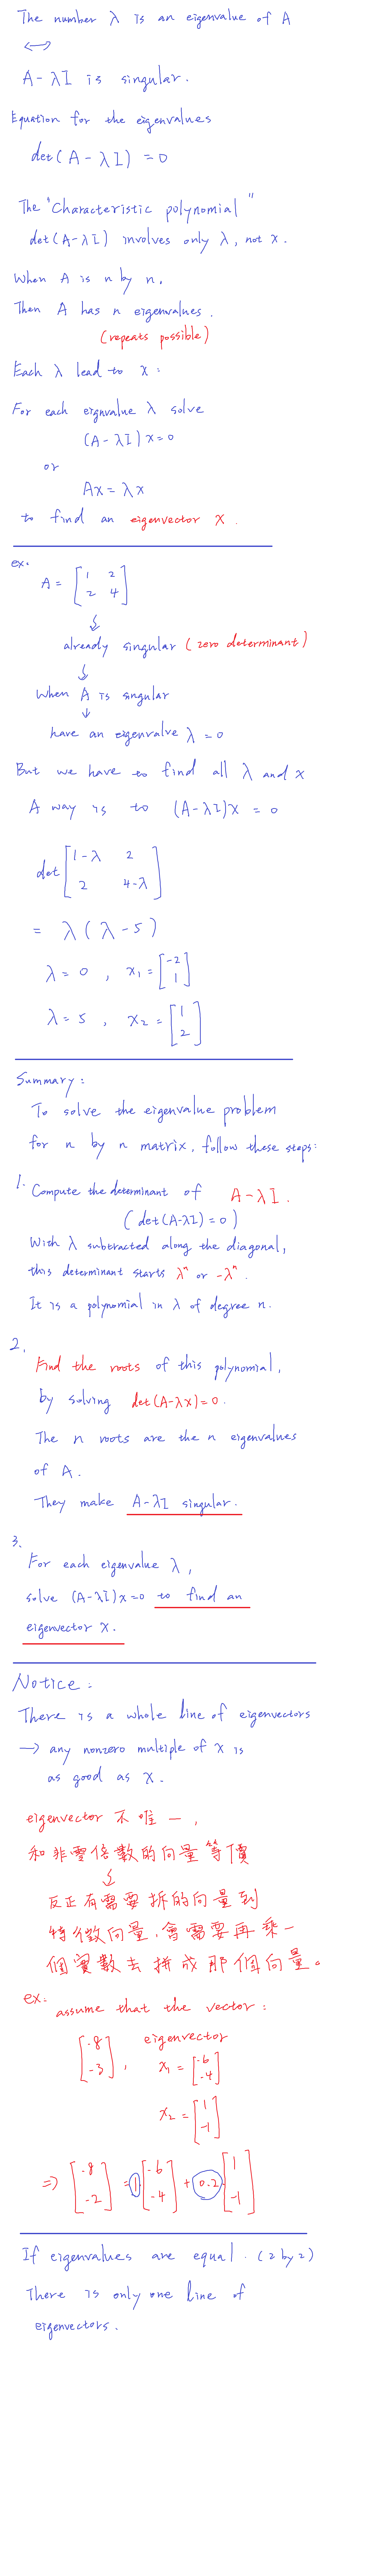 The number λ is an eigenvalue of A
↔
A - λI is singular.
Equation for the eigenvalues
det(A - λI) = 0
The "Characteristic polynomial"
det(A-λI) involves only λ, not x.
When A is n by n.
Then A has n eigenvalues.
(repeats possible)
Each λ lead to x:
For each eignvalue λ solve
(A - λI)x=0
or
Ax = λx
to find an eigenvector x.
ex.
A = [1 2
2 4]
↓
already singular (zero determinant)
↓
When A is singular
↓
have an eigenvalve λ = 0
But we have to find all λ and x
A way is to (A-λI)x = 0
det [1-λ 2
2 4-λ]
= λ(λ-5)
λ = 0, x₁ = [-2
1]
λ = 5, x₂ = [1
2]
Summary:
To solve the eigenvalue problem
for n by n matrix, follow these steps:
1. Compute the determinant of A-λI.
(det(A-λI)=0)
With λ subtracted along the diagonal,
this determinant starts λⁿ or -λⁿ.
It is a polynomial in λ of degree n.
2.
Find the roots of this polynomial,
by solving det(A-λx)=0.
The n roots are the n eigenvalues
of A.
They make A-λI singular.
3.
For each eigenvalue λ,
solve (A-λI)x=0 to find an
eigenvector x.
Notice:
There is a whole line of eigenvectors
→ any nonzero multiple of x is
as good as x.
eigenvector 不唯一,
和非零倍數的向量等價
↓
反正有需要拆的向量到
特徵向量,會需要再乘一
個實數去拼成那個向量。
ex:
assume that the vector:
[-8
-3], eigenvector
x₁ = [-6
-4]
x₂ = [1
-1]
⇒ [-8
-2] = 1 [-6
-4] + 0.2 [1
-1]
If eigenvalues are equal. (2 by 2)
There is only one line of
eigenvectors.